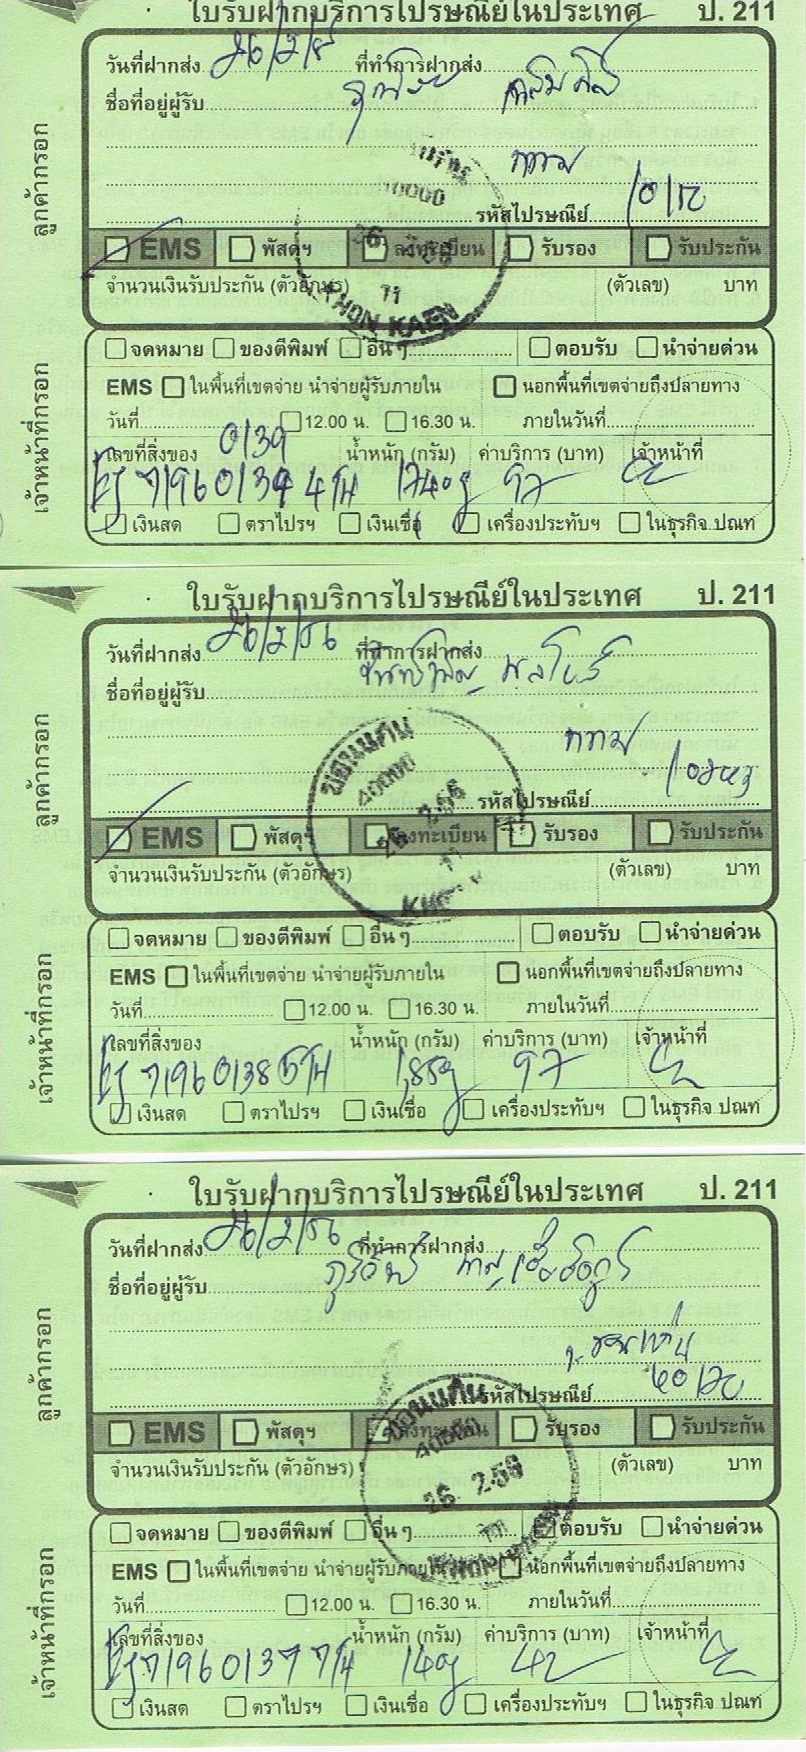 ใบรับฝากบริการไปรษณีย์ในประเทศ ป. 211
วันที่ฝากส่ง 26/2/ ที่ทำการฝากส่ง
ชื่อที่อยู่ผู้รับ
กทม
รหัสไปรษณีย์
ลูกค้ากรอก
EMS พัสดุฯ ลงทะเบียน รับรอง รับประกัน
จำนวนเงินรับประกัน (ตัวอักษร) (ตัวเลข) บาท
40000
11
KHON KAEN
จดหมาย ของตีพิมพ์ อื่น ๆ ตอบรับ นำจ่ายด่วน
EMS ในพื้นที่เขตจ่าย นำจ่ายผู้รับภายใน นอกพื้นที่เขตจ่ายถึงปลายทาง
วันที่ 12.00 น. 16.30 น. ภายในวันที่
เจ้าหน้าที่กรอก
เลขที่สิ่งของ 0139 น้ำหนัก (กรัม) ค่าบริการ (บาท) เจ้าหน้าที่
97
เงินสด ตราไปรฯ เงินเชื่อ เครื่องประทับฯ ในธุรกิจ ปณท
ใบรับฝากบริการไปรษณีย์ในประเทศ ป. 211
วันที่ฝากส่ง 26/2/56 ที่ทำการฝากส่ง
ชื่อที่อยู่ผู้รับ
กทม
รหัสไปรษณีย์
ลูกค้ากรอก
EMS พัสดุฯ ลงทะเบียน รับรอง รับประกัน
จำนวนเงินรับประกัน (ตัวอักษร) (ตัวเลข) บาท
ขอนแก่น
40000
26. 2.56
จดหมาย ของตีพิมพ์ อื่น ๆ ตอบรับ นำจ่ายด่วน
EMS ในพื้นที่เขตจ่าย นำจ่ายผู้รับภายใน นอกพื้นที่เขตจ่ายถึงปลายทาง
วันที่ 12.00 น. 16.30 น. ภายในวันที่
เจ้าหน้าที่กรอก
เลขที่สิ่งของ น้ำหนัก (กรัม) ค่าบริการ (บาท) เจ้าหน้าที่
97
เงินสด ตราไปรฯ เงินเชื่อ เครื่องประทับฯ ในธุรกิจ ปณท
ใบรับฝากบริการไปรษณีย์ในประเทศ ป. 211
วันที่ฝากส่ง 26/2/56 ที่ทำการฝากส่ง
ชื่อที่อยู่ผู้รับ
จ.ขอนแก่น
รหัสไปรษณีย์
ลูกค้ากรอก
EMS พัสดุฯ ลงทะเบียน รับรอง รับประกัน
จำนวนเงินรับประกัน (ตัวอักษร) (ตัวเลข) บาท
ขอนแก่น
40000
26. 2.56
จดหมาย ของตีพิมพ์ อื่น ๆ ตอบรับ นำจ่ายด่วน
EMS ในพื้นที่เขตจ่าย นำจ่ายผู้รับภายใน นอกพื้นที่เขตจ่ายถึงปลายทาง
วันที่ 12.00 น. 16.30 น. ภายในวันที่
เจ้าหน้าที่กรอก
เลขที่สิ่งของ น้ำหนัก (กรัม) ค่าบริการ (บาท) เจ้าหน้าที่
140g 42
เงินสด ตราไปรฯ เงินเชื่อ เครื่องประทับฯ ในธุรกิจ ปณท